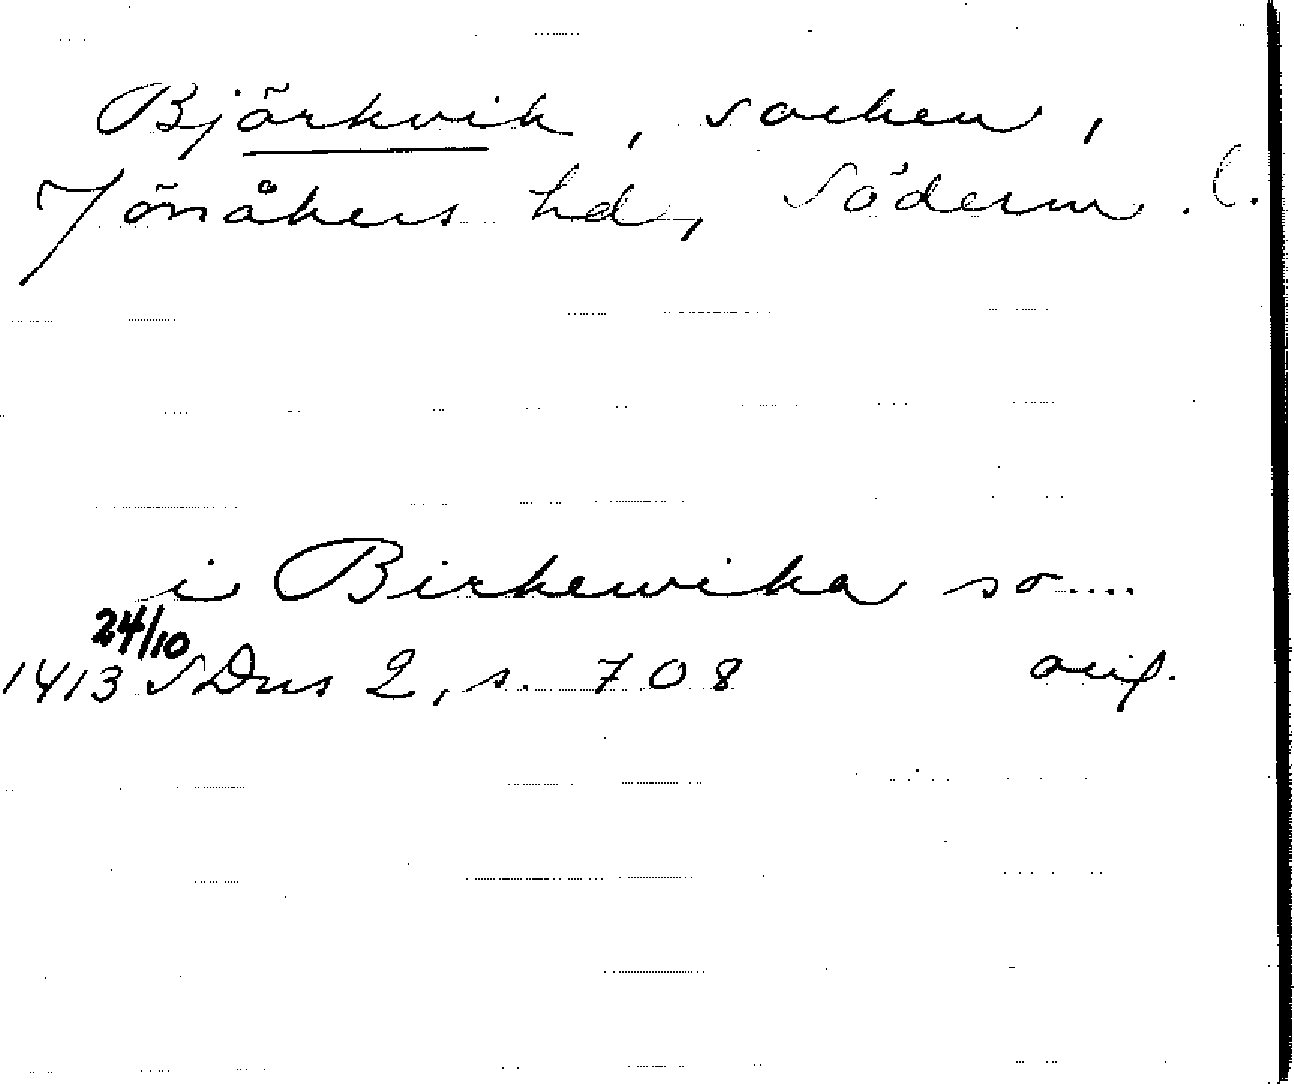 Björkvik, socken,
Jönåkers hd, Söderm. l.
i Birkewika so....
24/10
1413 SDns 2, s. 708 orig.